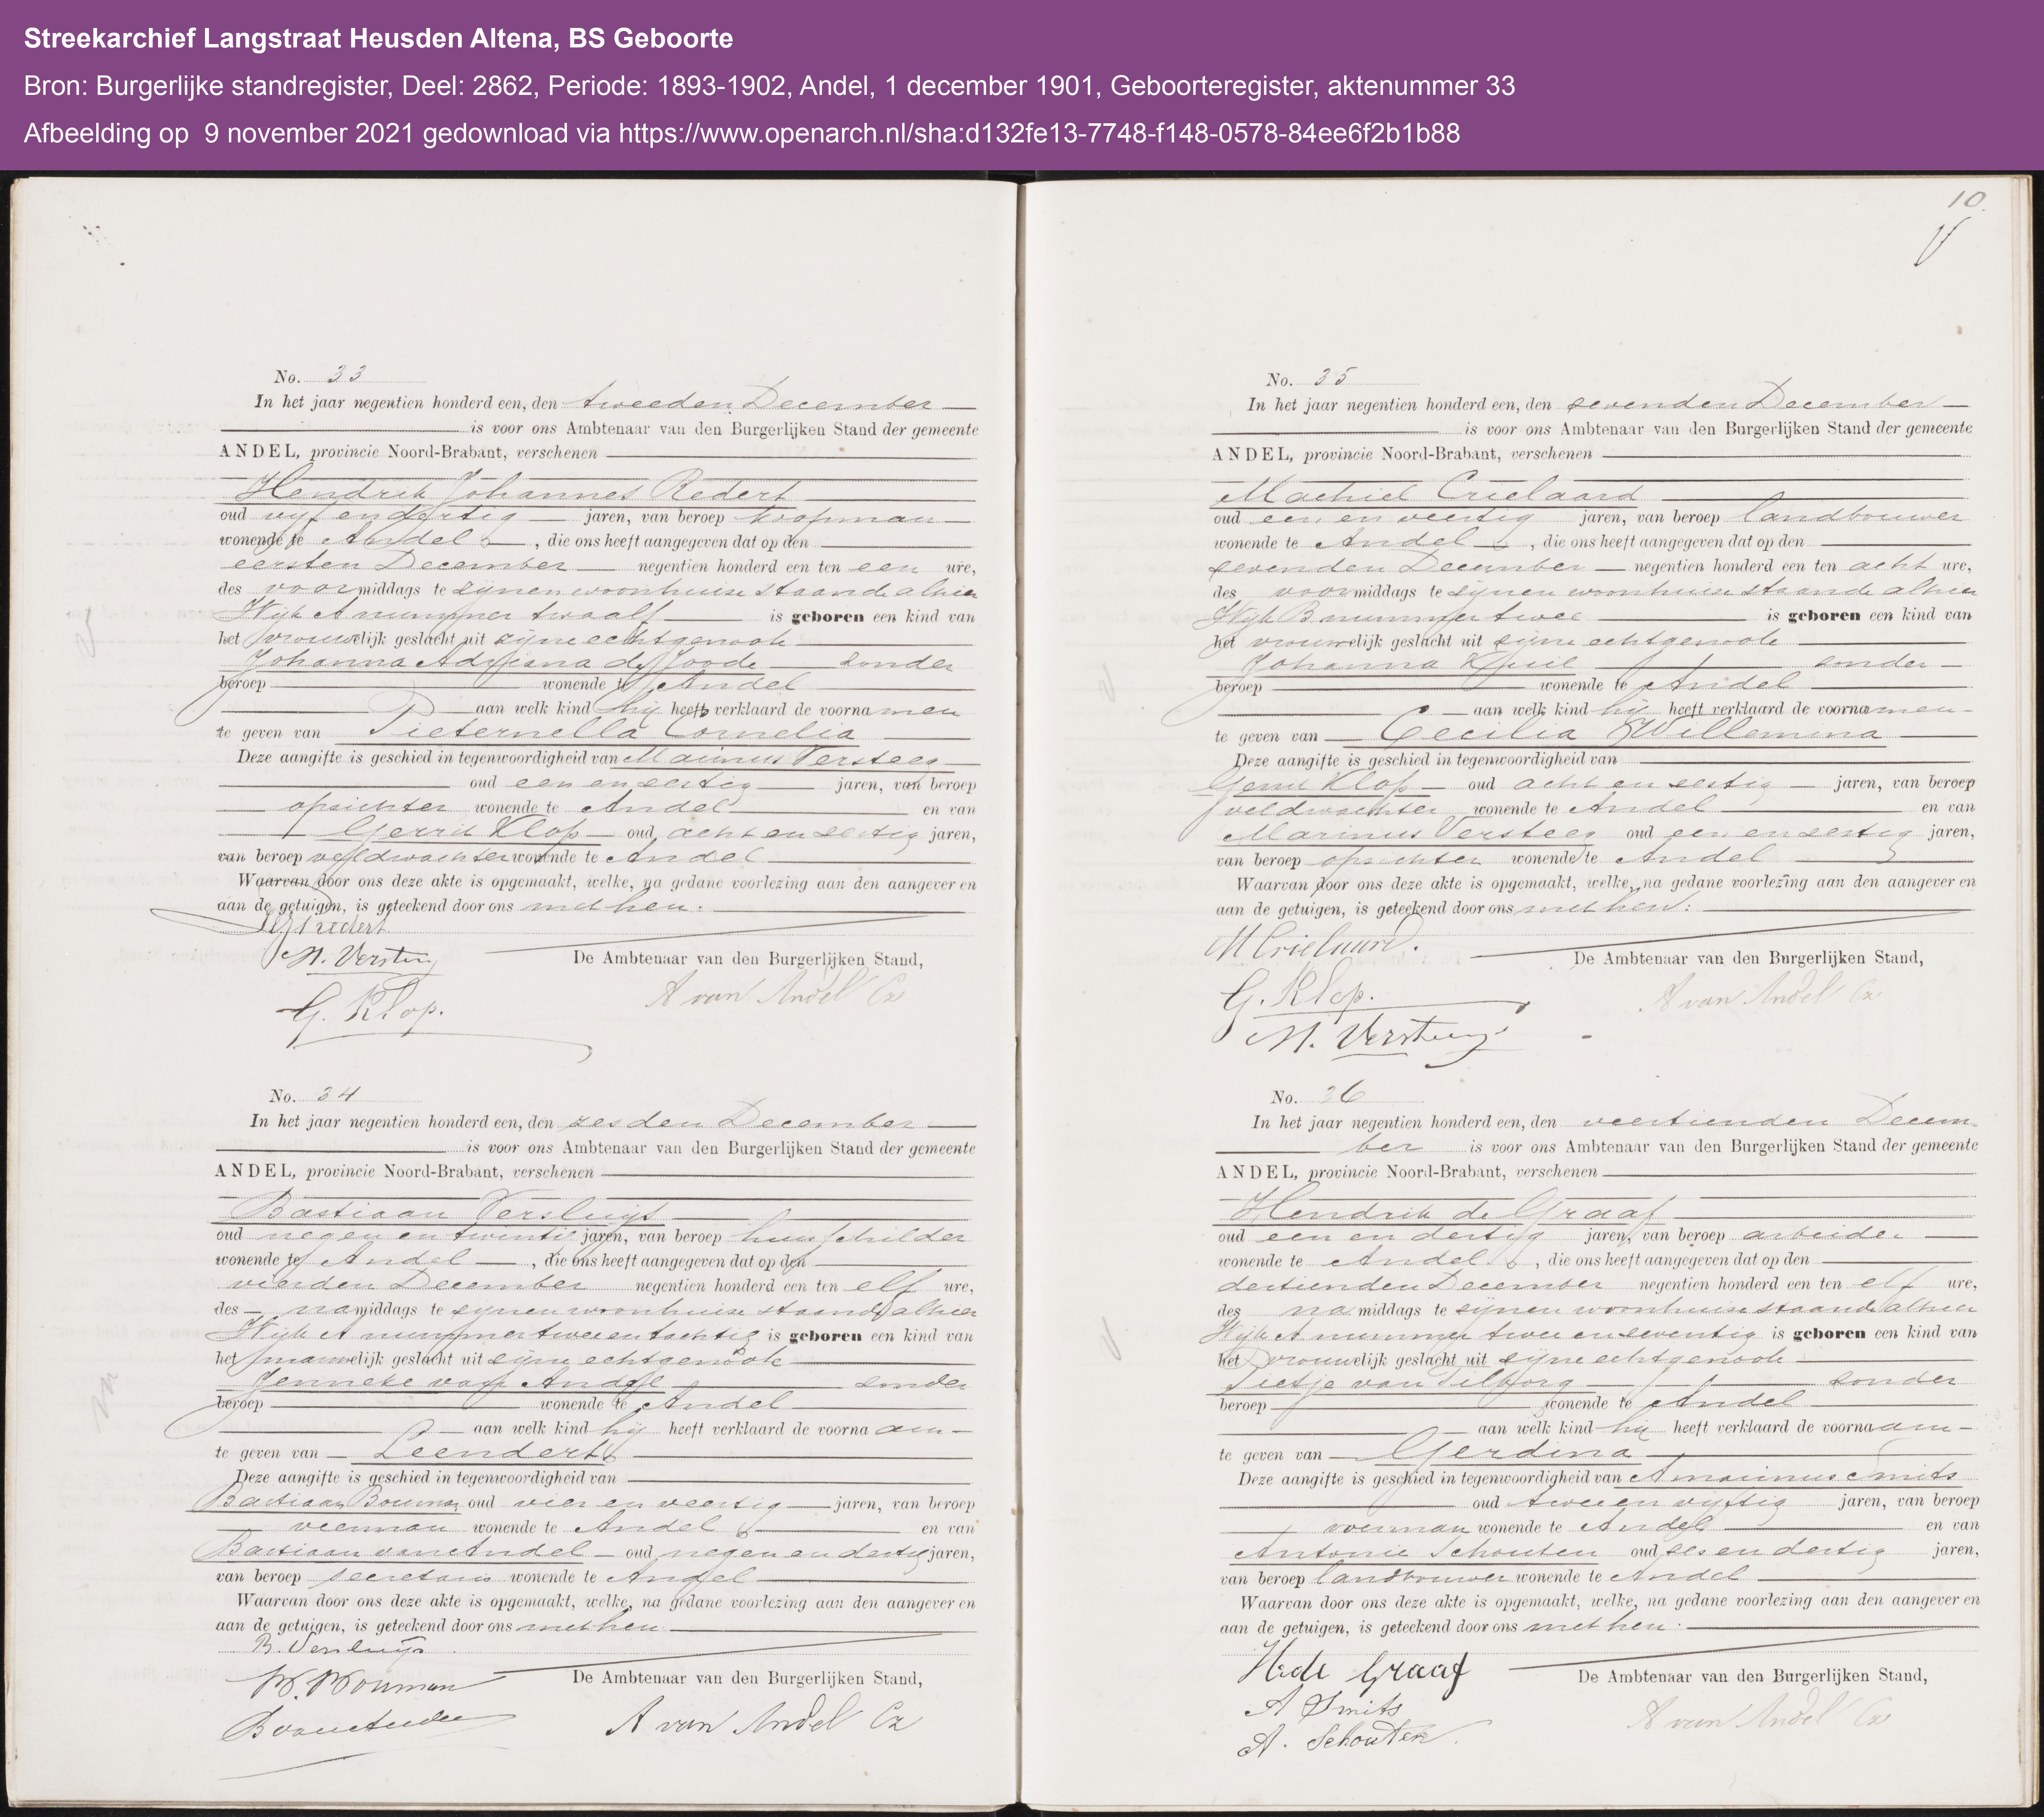 Streekarchief Langstraat Heusden Altena, BS Geboorte
Bron: Burgerlijke standregister, Deel: 2862, Periode: 1893-1902, Andel, 1 december 1901, Geboorteregister, aktenummer 33
Afbeelding op 9 november 2021 gedownload via https://www.openarch.nl/sha:d132fe13-7748-f148-0578-84ee6f2b1b88
No. 33
In het jaar negentien honderd een, den tweeden December
is voor ons Ambtenaar van den Burgerlijken Stand der gemeente
ANDEL, provincie Noord-Brabant, verschenen
Hendrik Johannes Redert
oud vijf en dertig jaren, van beroep koopman
wonende te Andel, die ons heeft aangegeven dat op den
eersten December negentien honderd een ten een ure,
des voormiddags te zijnen woonhuize staande alhier
Wijk A nummer twaalf is geboren een kind van
het vrouwelijk geslacht uit zijne echtgenoote
Johanna Adriana de Joode zonder
beroep wonende te Andel
aan welk kind hij heeft verklaard de voornamen
te geven van Pieternella Cornelia
Deze aangifte is geschied in tegenwoordigheid van Marinus Versteeg
oud een en zestig jaren, van beroep
opzichter wonende te Andel en van
Gerrit Klop oud acht en zestig jaren,
van beroep veldwachter wonende te Andel
Waarvan door ons deze akte is opgemaakt, welke, na gedane voorlezing aan den aangever en
aan de getuigen, is geteekend door ons met hen.
HJ Redert
M. Versteeg
De Ambtenaar van den Burgerlijken Stand,
G. Klop.
A van Andel Cz
No. 34
In het jaar negentien honderd een, den zesden December
is voor ons Ambtenaar van den Burgerlijken Stand der gemeente
ANDEL, provincie Noord-Brabant, verschenen
Bastiaan Versluijs
oud negen en twintig jaren, van beroep huisschilder
wonende te Andel, die ons heeft aangegeven dat op den
vierden December negentien honderd een ten elf ure,
des namiddags te zijnen woonhuize staande alhier
Wijk A nummer twee en tachtig is geboren een kind van
het mannelijk geslacht uit zijne echtgenoote
Jenneke van Andel zonder
beroep wonende te Andel
aan welk kind hij heeft verklaard de voornaam
te geven van Leendert
Deze aangifte is geschied in tegenwoordigheid van
Bastiaan Bouman oud vier en veertig jaren, van beroep
veerman wonende te Andel en van
Bastiaan van Andel oud negen en dertig jaren,
van beroep secretaris wonende te Andel
Waarvan door ons deze akte is opgemaakt, welke, na gedane voorlezing aan den aangever en
aan de getuigen, is geteekend door ons met hen
B. Versluijs
B. Bouman
De Ambtenaar van den Burgerlijken Stand,
B van Andel
A van Andel Cz
10.
No. 35
In het jaar negentien honderd een, den zevenden December
is voor ons Ambtenaar van den Burgerlijken Stand der gemeente
ANDEL, provincie Noord-Brabant, verschenen
Machiel Crielaard
oud een en veertig jaren, van beroep landbouwer
wonende te Andel, die ons heeft aangegeven dat op den
zevenden December negentien honderd een ten acht ure,
des voormiddags te zijnen woonhuize staande alhier
Wijk B nummer twee is geboren een kind van
het vrouwelijk geslacht uit zijne echtgenoote
Johanna zonder
beroep wonende te Andel
aan welk kind hij heeft verklaard de voornamen
te geven van Cecilia Willemina
Deze aangifte is geschied in tegenwoordigheid van
Gerrit Klop oud acht en zestig jaren, van beroep
veldwachter wonende te Andel en van
Marinus Versteeg oud een en zestig jaren,
van beroep opzichter wonende te Andel
Waarvan door ons deze akte is opgemaakt, welke, na gedane voorlezing aan den aangever en
aan de getuigen, is geteekend door ons met hen.
M Crielaard.
De Ambtenaar van den Burgerlijken Stand,
G. Klop.
A van Andel Cz
M. Versteeg
No. 36
In het jaar negentien honderd een, den veertienden Decem
ber is voor ons Ambtenaar van den Burgerlijken Stand der gemeente
ANDEL, provincie Noord-Brabant, verschenen
Hendrik de Graaf
oud een en dertig jaren, van beroep arbeider
wonende te Andel, die ons heeft aangegeven dat op den
dertienden December negentien honderd een ten elf ure,
des namiddags te zijnen woonhuize staande alhier
Wijk A nummer twee en zeventig is geboren een kind van
het vrouwelijk geslacht uit zijne echtgenoote
Pietje van Tilborg zonder
beroep wonende te Andel
aan welk kind hij heeft verklaard de voornaam
te geven van Gerdina
Deze aangifte is geschied in tegenwoordigheid van Amarinus Smits
oud twee en vijftig jaren, van beroep
voerman wonende te Andel en van
Antonie Schouten oud zes en dertig jaren,
van beroep landbouwer wonende te Andel
Waarvan door ons deze akte is opgemaakt, welke, na gedane voorlezing aan den aangever en
aan de getuigen, is geteekend door ons met hen.
H de Graaf
De Ambtenaar van den Burgerlijken Stand,
A Smits
A van Andel Cz
A. Schouten